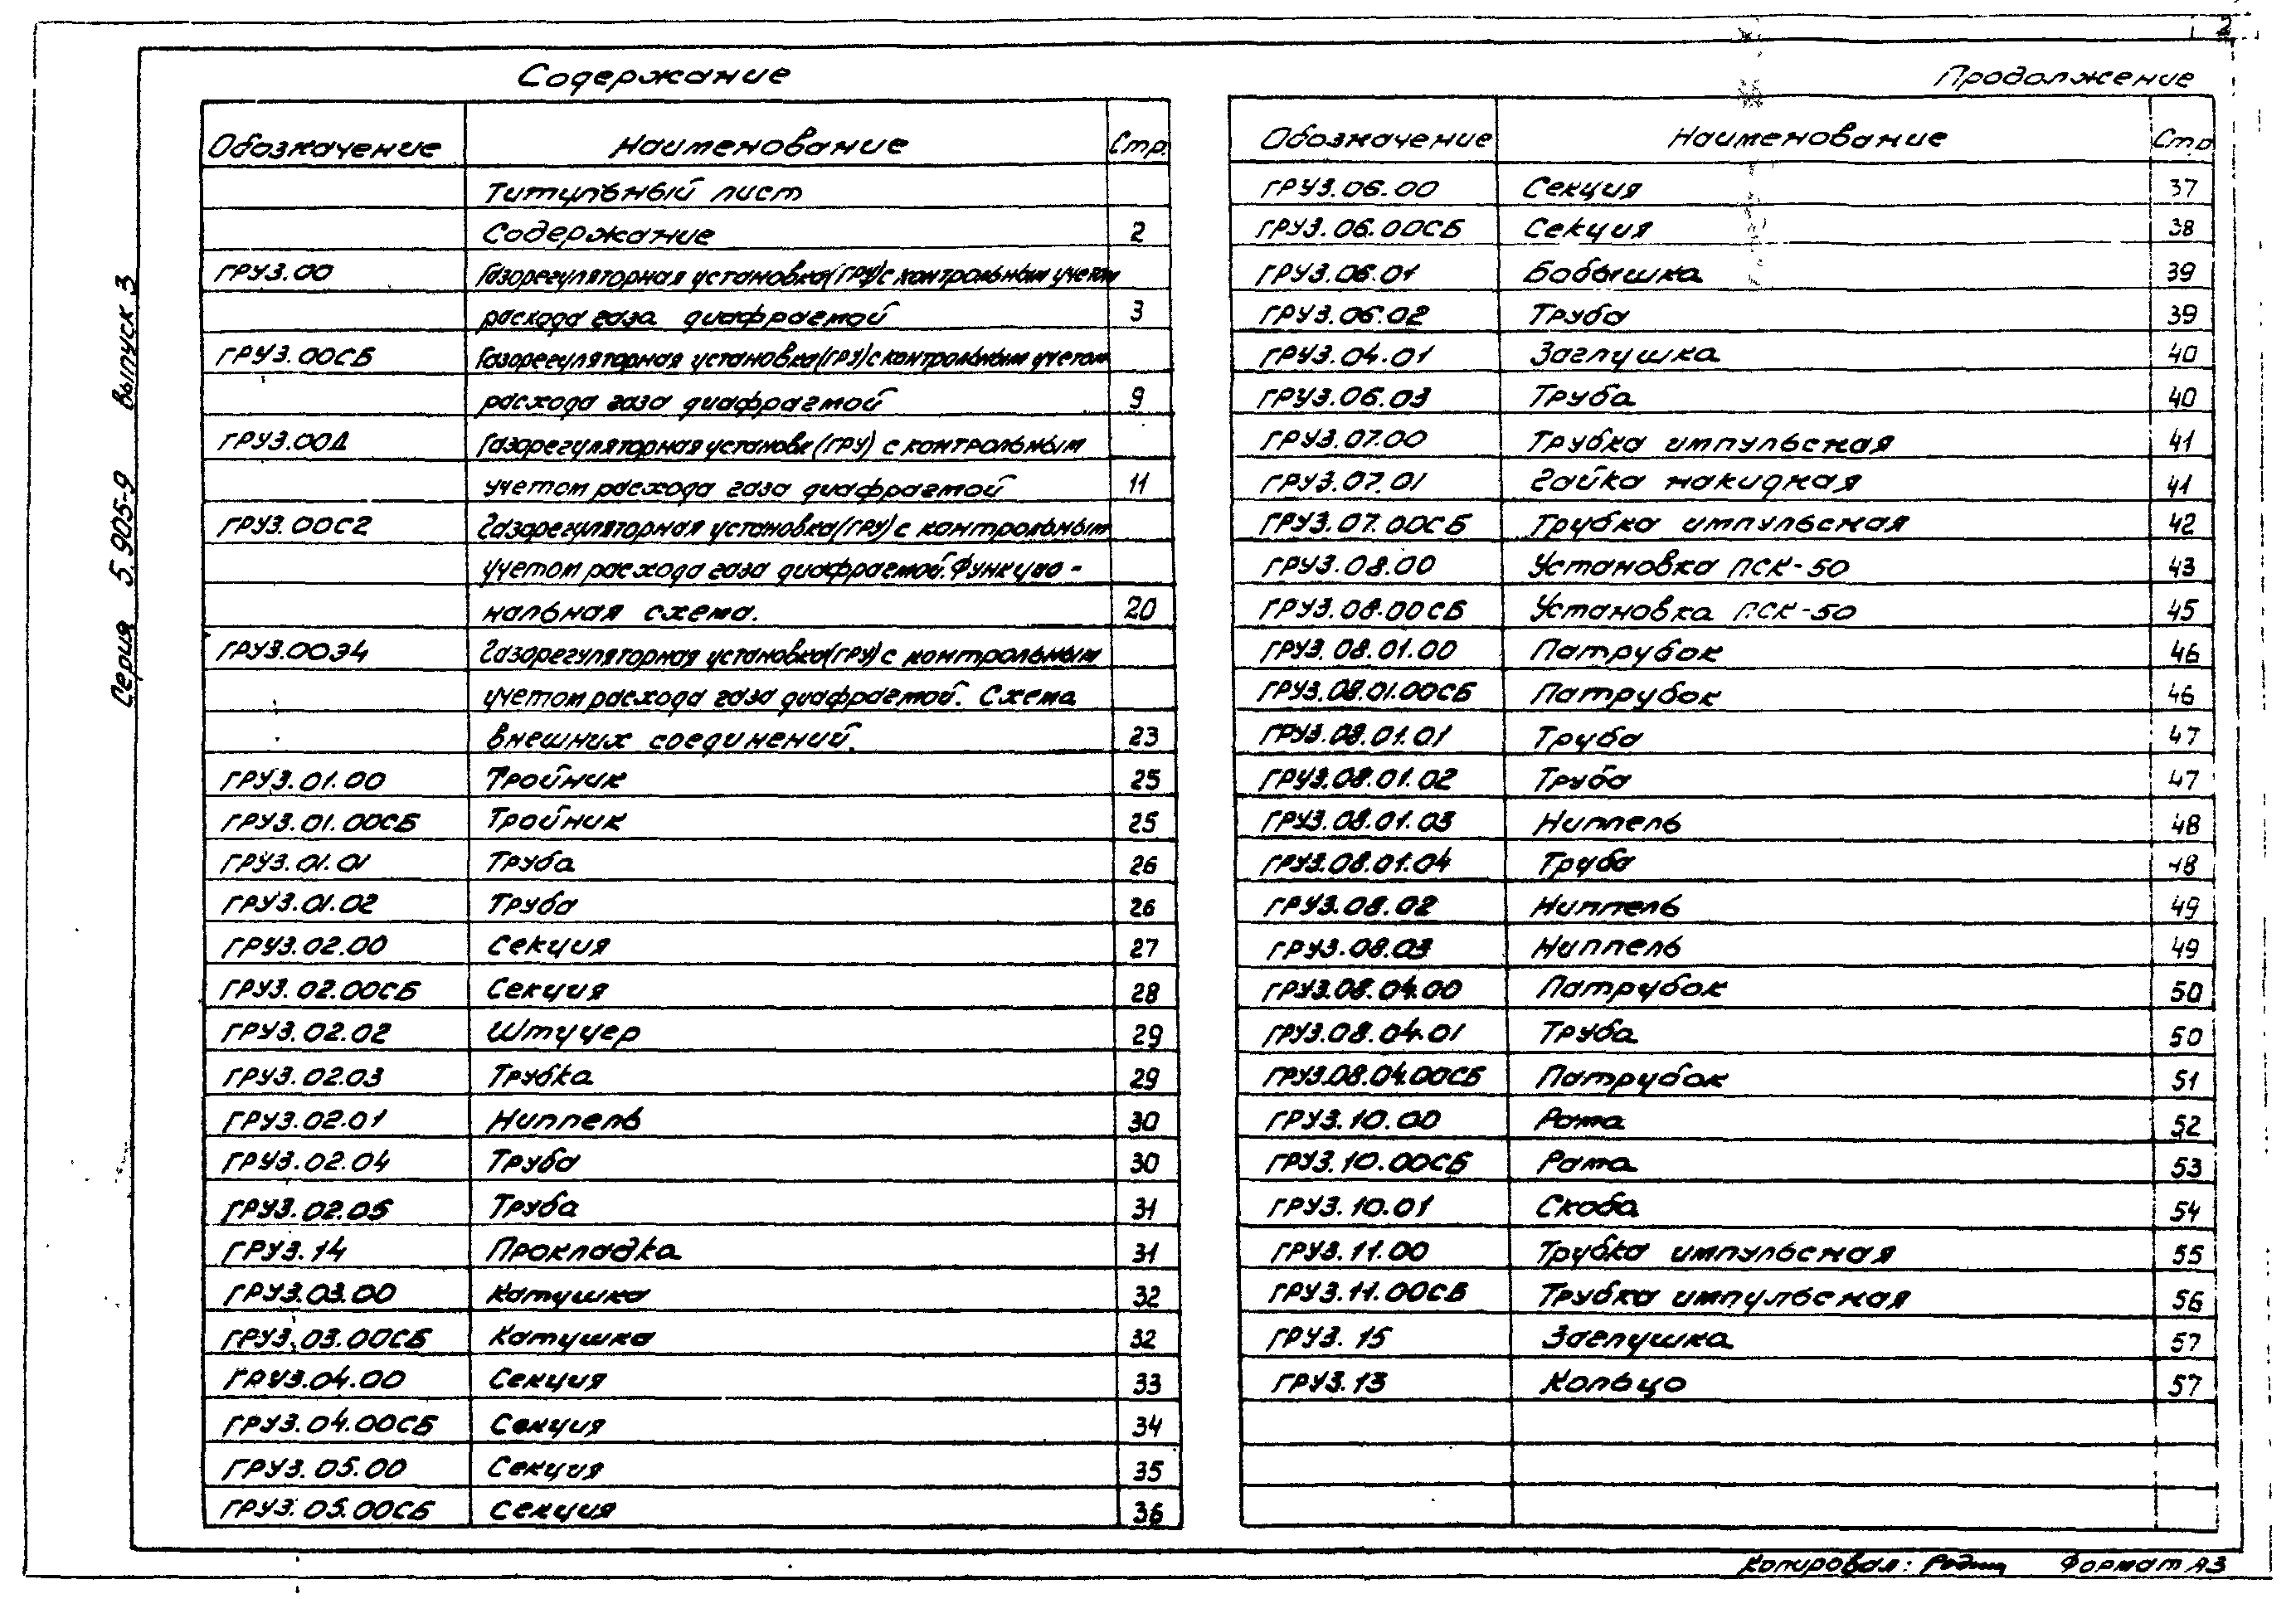 2
Содержание
Обозначение Наименование Стр
Титульный лист
Содержание 2
ГРУ3.00 Газорегуляторная установка(ГРУ)с контрольным учетом
расхода газа диафрагмой 3
ГРУ3.00СБ Газорегуляторная установка(ГРУ)с контрольным учетом
расхода газа диафрагмой 9
ГРУ3.00Д Газорегуляторная установк(ГРУ) с контрольным
учетом расхода газа диафрагмой 11
ГРУ3.00С2 Газорегуляторная установка(ГРУ) с контрольным
учетом расхода газа диафрагмой. Функцио-
нальная схема. 20
ГРУ3.00Э4 Газорегуляторная установка(ГРУ) с контрольным
учетом расхода газа диафрагмой. Схема
внешних соединений. 23
ГРУ3.01.00 Тройник 25
ГРУ3.01.00СБ Тройник 25
ГРУ3.01.01 Труба 26
ГРУ3.01.02 Труба 26
ГРУ3.02.00 Секция 27
ГРУ3.02.00СБ Секция 28
ГРУ3.02.02 Штуцер 29
ГРУ3.02.03 Трубка 29
ГРУ3.02.01 Ниппель 30
ГРУ3.02.04 Труба 30
ГРУ3.02.05 Труба 31
ГРУ3.14 Прокладка 31
ГРУ3.03.00 Катушка 32
ГРУ3.03.00СБ Катушка 32
ГРУ3.04.00 Секция 33
ГРУ3.04.00СБ Секция 34
ГРУ3.05.00 Секция 35
ГРУ3.05.00СБ Секция 36
Продолжение
Обозначение Наименование Стр
ГРУ3.06.00 Секция 37
ГРУ3.06.00СБ Секция 38
ГРУ3.06.01 Бобышка 39
ГРУ3.06.02 Труба 39
ГРУ3.04.01 Заглушка 40
ГРУ3.06.03 Труба 40
ГРУ3.07.00 Трубка импульсная 41
ГРУ3.07.01 Гайка накидная 41
ГРУ3.07.00СБ Трубка импульсная 42
ГРУ3.08.00 Установка ПСК-50 43
ГРУ3.08.00СБ Установка ПСК-50 45
ГРУ3.08.01.00 Патрубок 46
ГРУ3.08.01.00СБ Патрубок 46
ГРУ3.08.01.01 Труба 47
ГРУ3.08.01.02 Труба 47
ГРУ3.08.01.03 Ниппель 48
ГРУ3.08.01.04 Труба 48
ГРУ3.08.02 Ниппель 49
ГРУ3.08.03 Ниппель 49
ГРУ3.08.04.00 Патрубок 50
ГРУ3.08.04.01 Труба 50
ГРУ3.08.04.00СБ Патрубок 51
ГРУ3.10.00 Рама 52
ГРУ3.10.00СБ Рама 53
ГРУ3.10.01 Скоба 54
ГРУ3.11.00 Трубка импульсная 55
ГРУ3.11.00СБ Трубка импульсная 56
ГРУ3.15 Заглушка 57
ГРУ3.13 Кольцо 57
Серия 5.905-9 выпуск 3
Копировал: Формат А3